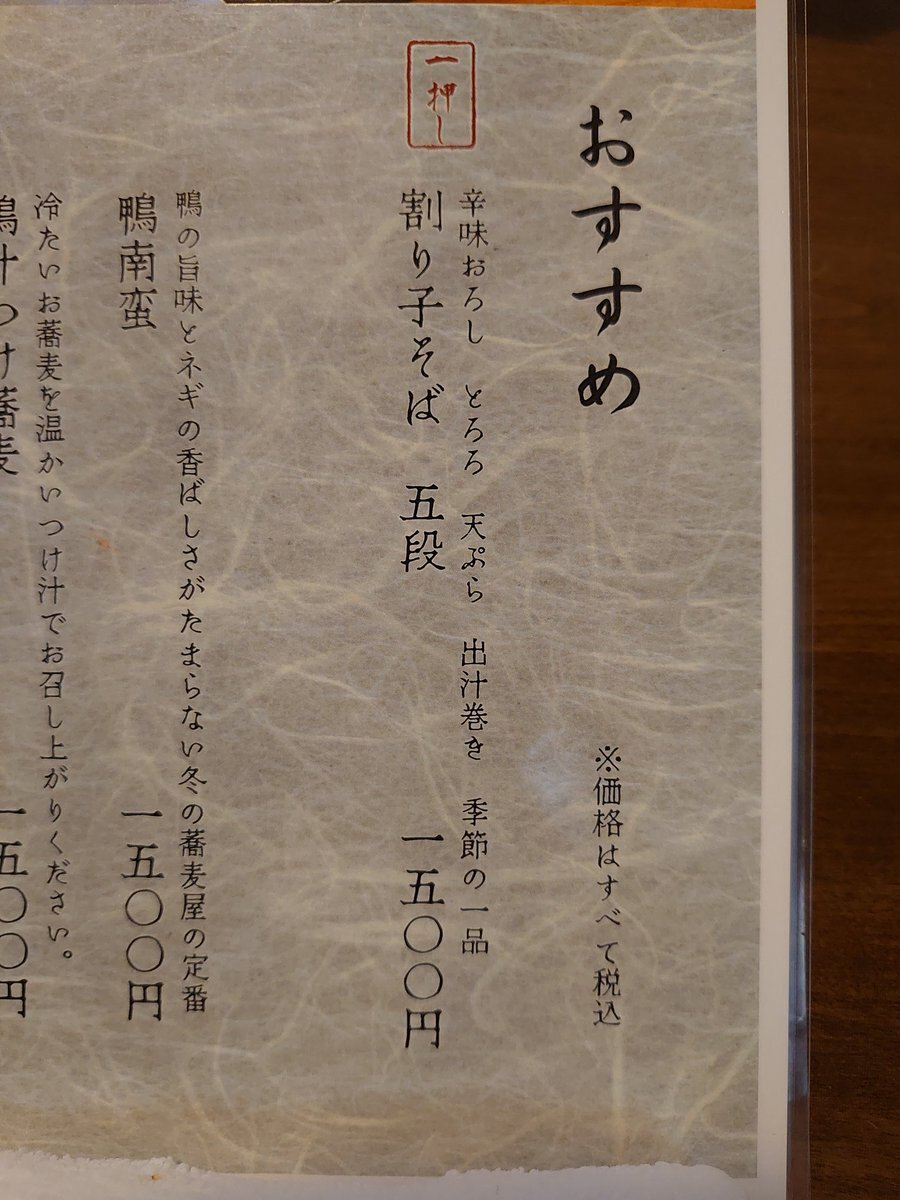 おすすめ
※価格はすべて税込
一押し
辛味おろし　とろろ　天ぷら　出汁巻き　季節の一品
割り子そば　五段　一五〇〇円
鴨の旨味とネギの香ばしさがたまらない冬の蕎麦屋の定番
鴨南蛮　一五〇〇円
冷たいお蕎麦を温かいつけ汁でお召し上がりください。
鴨汁つけ蕎麦　一五〇〇円